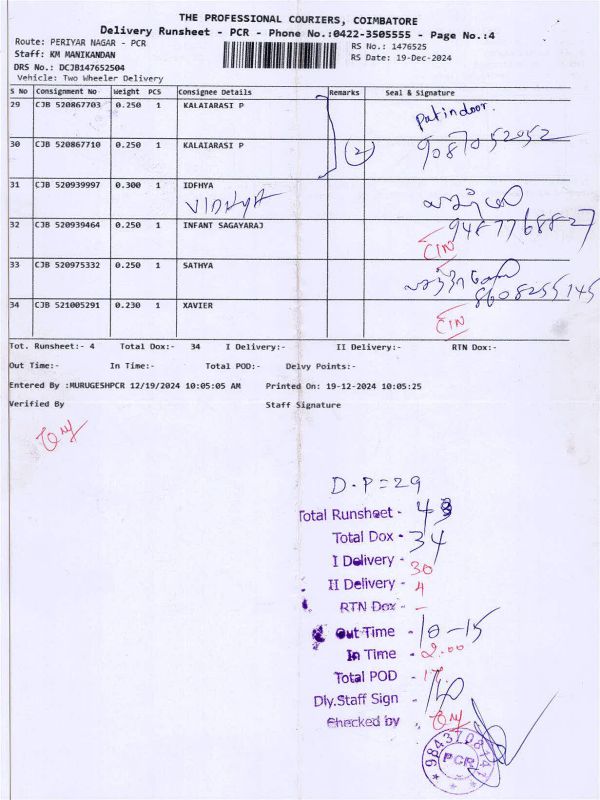 THE PROFESSIONAL COURIERS, COIMBATORE
Delivery Runsheet - PCR - Phone No.:0422-3505555 - Page No.:4
Route: PERIYAR NAGAR - PCR
RS No.: 1476525
Staff: KM MANIKANDAN
RS Date: 19-Dec-2024
DRS No.: DCJB147652504
Vehicle: Two Wheeler Delivery
S No Consignment No Weight PCS Consignee Details Remarks Seal & Signature
29 CJB 520867703 0.250 1 KALAIARASI P
30 CJB 520867710 0.250 1 KALAIARASI P 2 9087052052
31 CJB 520939997 0.300 1 IDFHYA
VIDHYA
32 CJB 520939464 0.250 1 INFANT SAGAYARAJ 9487768827
CIN
33 CJB 520975332 0.250 1 SATHYA 8608255145
34 CJB 521005291 0.230 1 XAVIER CIN
Tot. Runsheet:- 4 Total Dox:- 34 I Delivery:- II Delivery:- RTN Dox:-
Out Time:- In Time:- Total POD:- Delvy Points:-
Entered By :MURUGESHPCR 12/19/2024 10:05:05 AM Printed On: 19-12-2024 10:05:25
Verified By Staff Signature
D.P=29
Total Runsheet - 4
Total Dox - 34
I Delivery - 30
II Delivery - 4
RTN Dox - –
Out Time - 10-15
In Time - 2.00
Total POD -
Dly.Staff Sign -
Checked by -
PCR